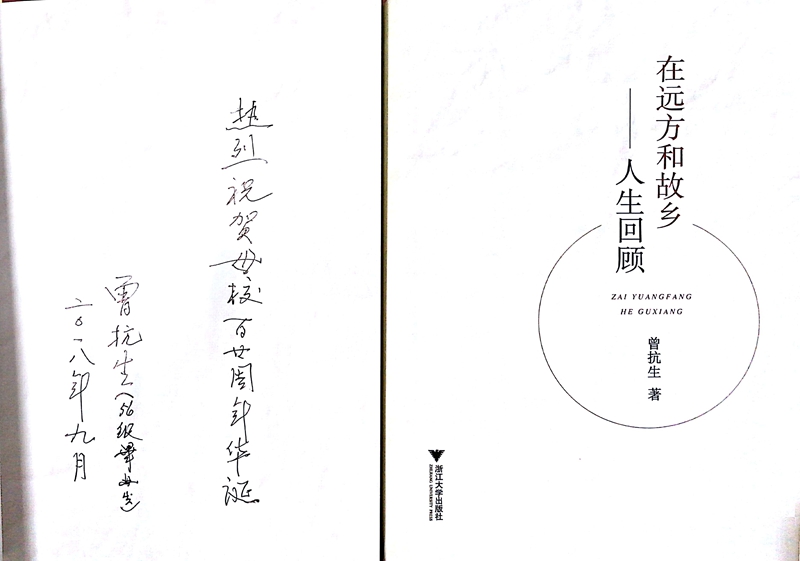 热烈祝贺母校百廿周年华诞
曾抗生(56级毕业生)
二〇一八年九月
在远方和故乡
——人生回顾
ZAI YUANGFANG
HE GUXIANG
曾抗生 著
浙江大学出版社
ZHEJIANG UNIVERSITY PRESS